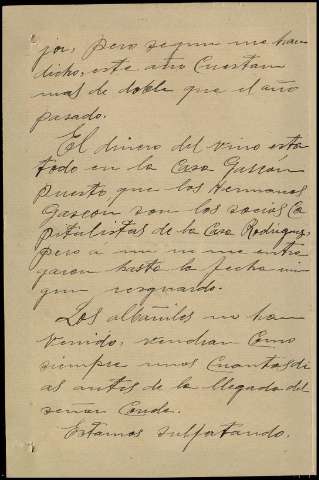 jor, pero segun me han
dicho, este año cuestan
mas de doble que el año
pasado.
El dinero del vino esta
todo en la Casa Gascón
puesto que los Hermanos
Gascon son los socios Ca
pitalistas de la Casa Rodriguez,
pero a mi no me entre
garon hasta la fecha nin
gun resguardo.
Los albañiles no han
venido, vendran como
siempre unos cuantos di
as antes de la llegada del
señor Conde.
Estamos sulfatando.